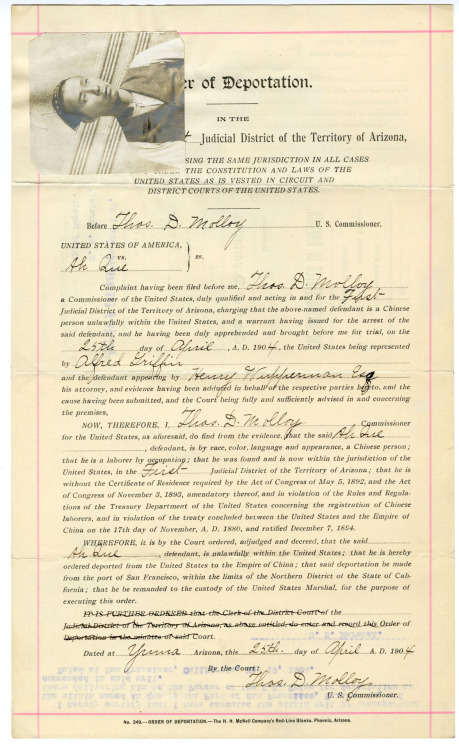 er of Deportation.
IN THE
t Judicial District of the Territory of Arizona,
SING THE SAME JURISDICTION IN ALL CASES
THE CONSTITUTION AND LAWS OF THE
UNITED STATES AS IS VESTED IN CIRCUIT AND
DISTRICT COURTS OF THE UNITED STATES.
Before Thos. D. Molloy U. S. Commissioner.
UNITED STATES OF AMERICA,
vs. ss.
Ah Que
Complaint having been filed before me, Thos. D. Molloy
a Commissioner of the United States, duly qualified and acting in and for the First
Judicial District of the Territory of Arizona, charging that the above-named defendant is a Chinese
person unlawfully within the United States, and a warrant having issued for the arrest of the
said defendant, and he having been duly apprehended and brought before me for trial, on the
25th day of April, A. D. 1904, the United States being represented
by Alfred Griffin
and the defendant appearing by Henry Wupperman Esq
his attorney, and evidence having been adduced in behalf of the respective parties hereto, and the
cause having been submitted, and the Court being fully and sufficiently advised in and concerning
the premises,
NOW, THEREFORE, I, Thos. D. Molloy Commissioner
for the United States, as aforesaid, do find from the evidence, that the said Ah Que
, defendant, is by race, color, language and appearance, a Chinese person;
that he is a laborer by occupation; that he was found and is now within the jurisdiction of the
United States, in the First Judicial District of the Territory of Arizona; that he is
without the Certificate of Residence required by the Act of Congress of May 5, 1892, and the Act
of Congress of November 3, 1893, amendatory thereof, and in violation of the Rules and Regula-
tions of the Treasury Department of the United States concerning the registration of Chinese
laborers, and in violation of the treaty concluded between the United States and the Empire of
China on the 17th day of November, A. D. 1880, and ratified December 7, 1894.
WHEREFORE, it is by the Court ordered, adjudged and decreed, that the said
Ah Que, defendant, is unlawfully within the United States; that he is hereby
ordered deported from the United States to the Empire of China; that said deportation be made
from the port of San Francisco, within the limits of the Northern District of the State of Cali-
fornia; that he be remanded to the custody of the United States Marshal, for the purpose of
executing this order.
IT IS FURTHER ORDERED that the Clerk of the District Court of the
Judicial District of the Territory of Arizona, as above entitled, do enter and record this Order of
Deportation in the minutes of said Court.
Dated at Yuma Arizona, this 25th. day of April A. D. 1904
By the Court:
Thos. D. Molloy
U. S. Commissioner.
No. 249.--ORDER OF DEPORTATION.--The H. H. McNeil Company's Red-Line Blanks, Phoenix, Arizona.